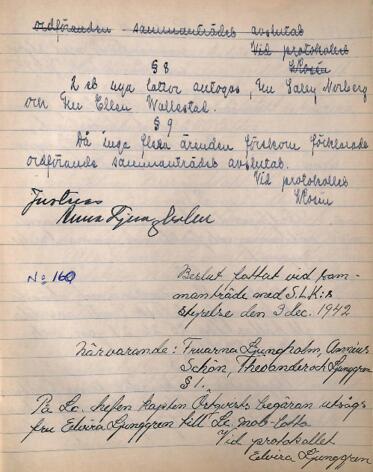 ordföranden sammanträdet avslutat
Vid protokollet
§ 8
2 st nya lottor antogos, Fru Sally Norberg
och Fru Ellen Wallestad.
§ 9
Då inga flera ärenden förekom förklarade
ordförande sammanträdet avslutat.
Vid protokollet
Justeras
Anna Ljungholm
No 160
Beslut fattat vid sam-
manträde med S.L.K:s
styrelse den 3 dec. 1942
Närvarande: Fruarna Ljungholm,
Schön, Theander och Ljunggren
§ 1.
På Lc. chefen kapten begäran utsågs
fru Elvira Ljunggren till Lc. mob-lotta
Vid protokollet
Elvira Ljunggren